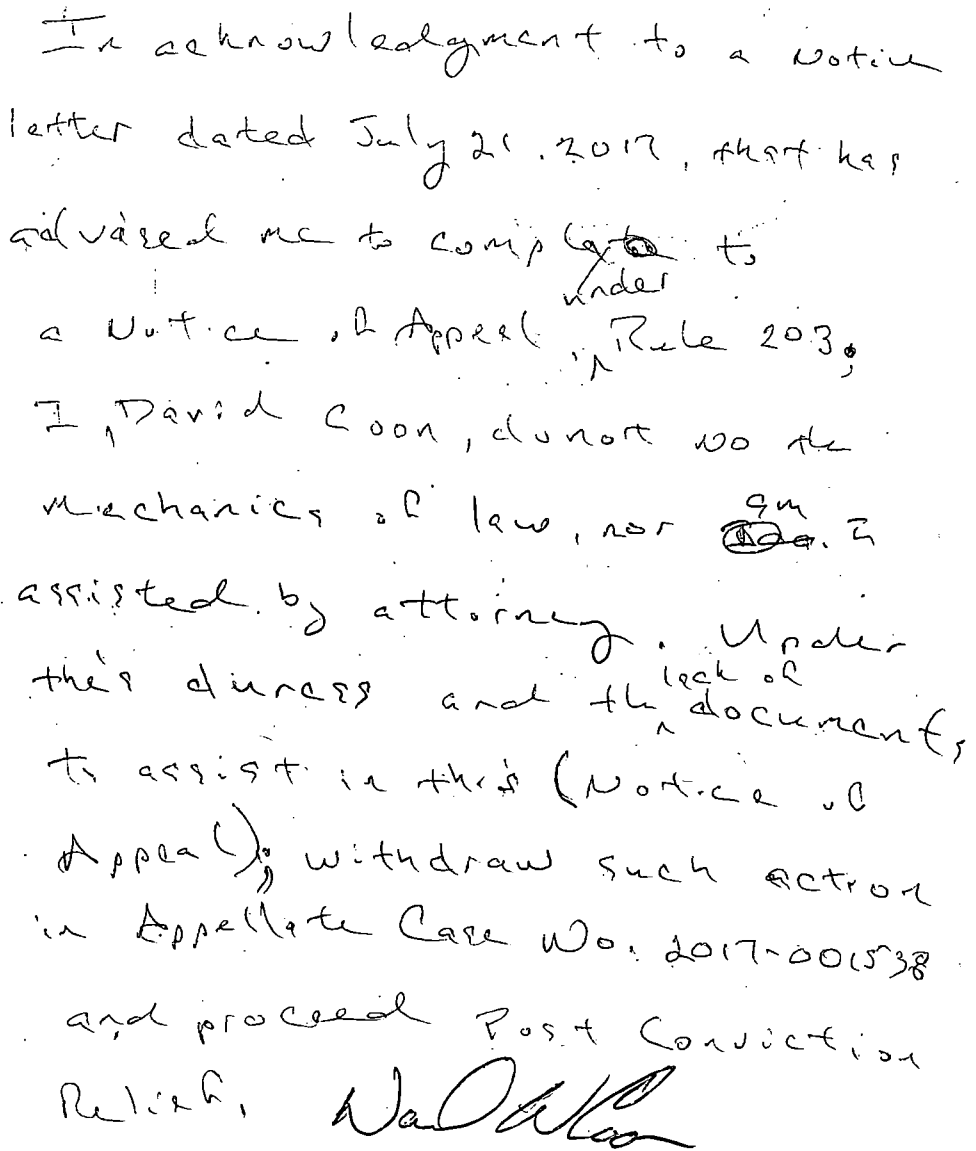 In acknowledgment to a Notice
letter dated July 21, 2017, that has
advised me to comply to
a Notice of Appeal, under Rule 203;
I, David Coon, do not no the
mechanics of law, nor am I
assisted by attorney. Under
this duress and the lack of documents,
to assist in this (Notice of
Appeal); withdraw such action
in Appellate Case No. 2017-001538
and proceed Post Conviction
Relief.